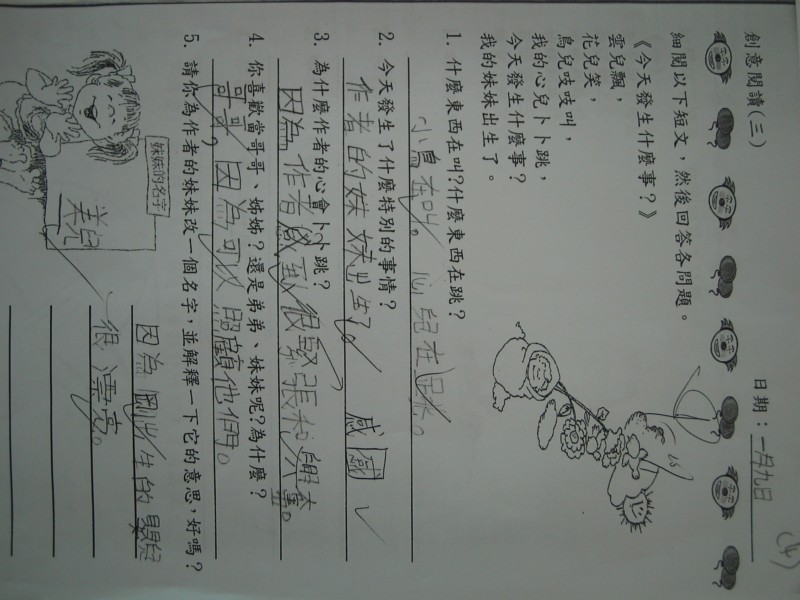 (4)
創意閱讀(三)
日期：一月九日
細閱以下短文，然後回答各問題。
《今天發生什麼事？》
雲兒飄，
花兒笑，
鳥兒吱吱叫，
我的心兒卜卜跳，
今天發生什麼事？
我的妹妹出生了。
1. 什麼東西在叫?什麼東西在跳？
小鳥在叫。心兒在跳。
2. 今天發生了什麼特別的事情？
作者的妹妹出生了。
3. 為什麼作者的心會卜卜跳？
因為作者感到很緊張和興奮。
4. 你喜歡當哥哥、姊姊？還是弟弟、妹妹呢?為什麼？
哥哥，因為可以照顧他們。
5. 請你為作者的妹妹改一個名字，並解釋一下它的意思，好嗎？
妹妹的名字
美兒
因為剛出生的嬰兒
很漂亮。